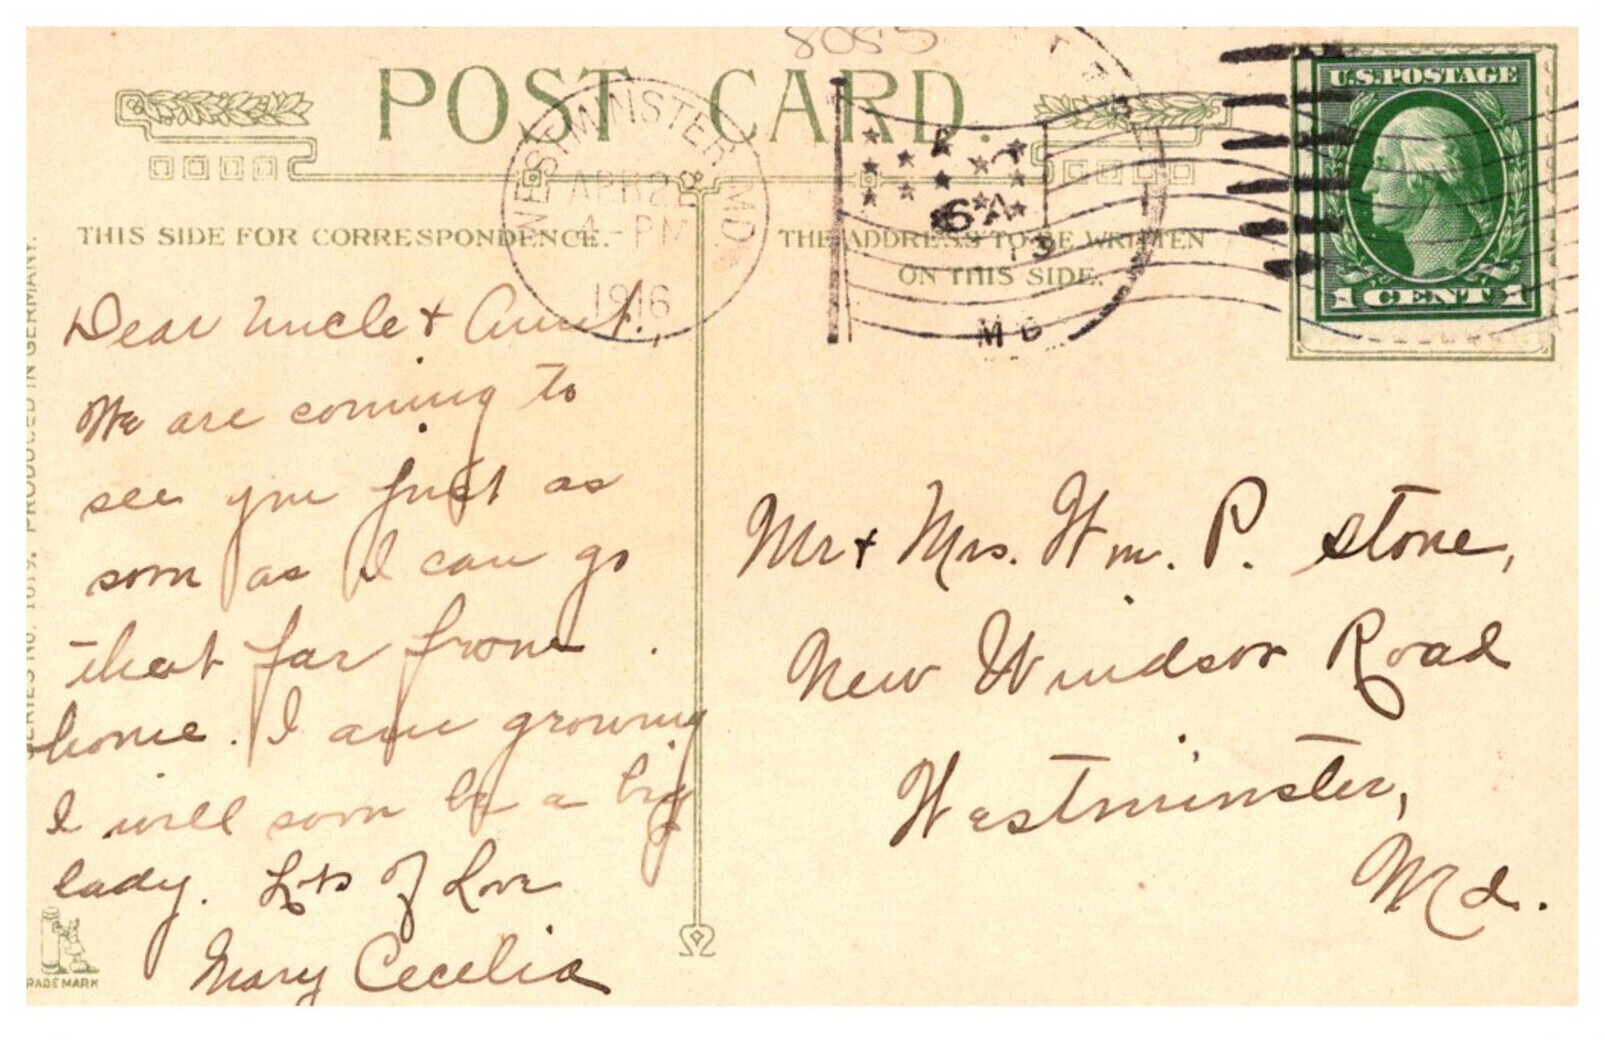 8085
POST CARD.
WESTMINSTER MD.
APR 22
4-PM
1916
6 A
MD
U.S. POSTAGE
1 CENT 1
THIS SIDE FOR CORRESPONDENCE.
THE ADDRESS TO BE WRITTEN
ON THIS SIDE.
Dear Uncle & Aunt,
We are coming to
see you just as
soon as I can go
that far from
home. I am growing
I will soon be a big
lady. Lots of Love
Mary Cecelia
Mr & Mrs. Wm. P. Stone,
New Windsor Road
Westminster,
Md.
SERIES No. 1019. PRODUCED IN GERMANY.
RADE MARK